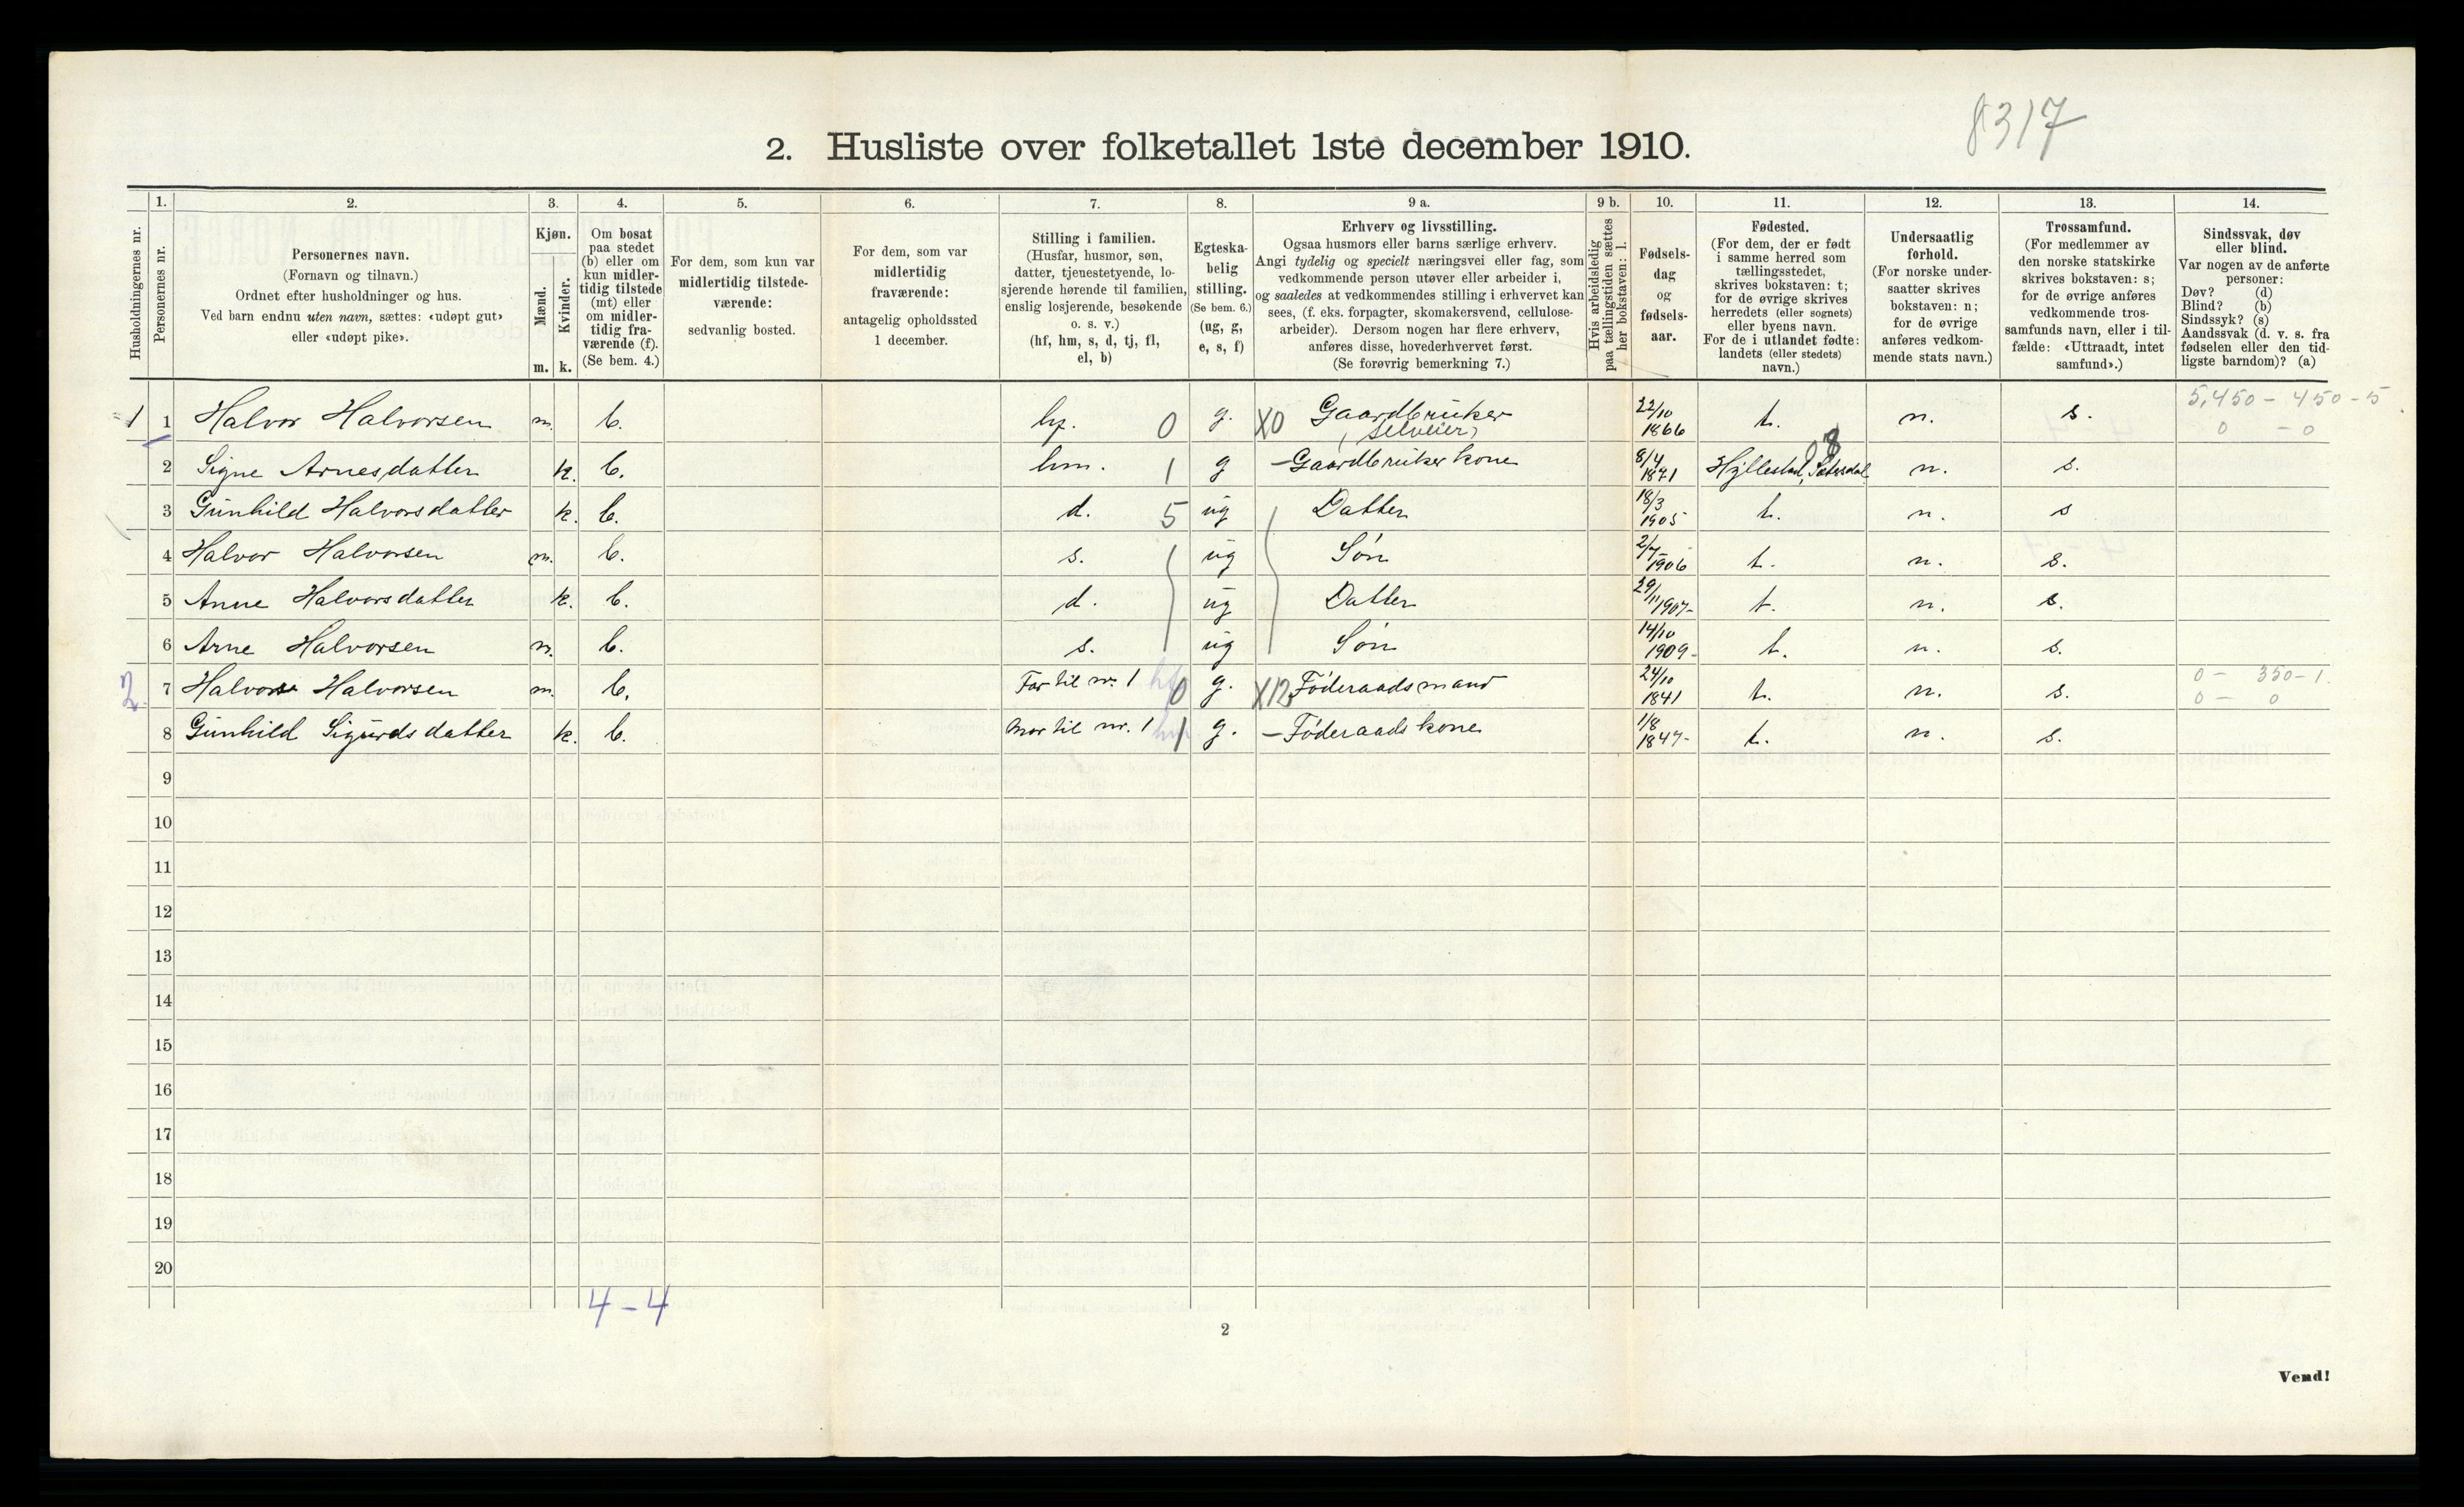 8317
2. Husliste over folketallet 1ste december 1910.
Husholdningernes nr.
1.
Personernes nr.
2.
Personernes navn.
(Fornavn og tilnavn.)
Ordnet efter husholdninger og hus.
Ved barn endnu uten navn, sættes: «udøpt gut»
eller «udøpt pike».
3.
Kjøn.
Mænd.
Kvinder.
m. k.
4.
Om bosat
paa stedet
(b) eller om
kun midler-
tidig tilstede
(mt) eller
om midler-
tidig fra-
værende (f).
(Se bem. 4.)
5.
For dem, som kun var
midlertidig tilstede-
værende:
sedvanlig bosted.
6.
For dem, som var
midlertidig
fraværende:
antagelig opholdssted
1 december.
7.
Stilling i familien.
(Husfar, husmor, søn,
datter, tjenestetyende, lo-
sjerende hørende til familien,
enslig losjerende, besøkende
o. s. v.)
(hf, hm, s, d, tj, fl,
el, b)
8.
Egteska-
belig
stilling.
(Se bem. 6.)
(ug, g,
e, s, f)
9 a.
Erhverv og livsstilling.
Ogsaa husmors eller barns særlige erhverv.
Angi tydelig og specielt næringsvei eller fag, som
vedkommende person utøver eller arbeider i,
og saaledes at vedkommendes stilling i erhvervet kan
sees, (f. eks. forpagter, skomakersvend, cellulose-
arbeider). Dersom nogen har flere erhverv,
anføres disse, hovederhvervet først.
(Se forøvrig bemerkning 7.)
9 b.
Hvis arbeidsledig
paa tællingstiden sættes
her bokstaven: l.
10.
Fødsels-
dag
og
fødsels-
aar.
11.
Fødested.
(For dem, der er født
i samme herred som
tællingsstedet,
skrives bokstaven: t;
for de øvrige skrives
herredets (eller sognets)
eller byens navn.
For de i utlandet fødte:
landets (eller stedets)
navn.)
12.
Undersaatlig
forhold.
(For norske under-
saatter skrives
bokstaven: n;
for de øvrige
anføres vedkom-
mende stats navn.)
13.
Trossamfund.
(For medlemmer av
den norske statskirke
skrives bokstaven: s;
for de øvrige anføres
vedkommende tros-
samfunds navn, eller i til-
fælde: «Uttraadt, intet
samfund».)
14.
Sindssvak, døv
eller blind.
Var nogen av de anførte
personer:
Døv? (d)
Blind? (b)
Sindssyk? (s)
Aandssvak (d. v. s. fra
fødselen eller den tid-
ligste barndom)? (a)
1 1 Halvor Halvorsen m. b. hf. 0 g. X0 Gaardbruker (selveier) 22/10 1866 t. n. s. 5,450 - 450 - 5 0 - 0
2 Signe Arnesdatter k. b. hm. 1 g - Gaardbruker kone 8/4 1871 Hyllestad, Sætersdal 8 n. s.
3 Gunhild Halvorsdatter k. b. d. 5 ug Datter 18/3 1905 t. n. s
4 Halvor Halvorsen m. b. s. ug Søn 2/7 1906 t. n. s.
5 Anne Halvorsdatter k. b. d. ug Datter 29/11 1907- t. n. s.
6 Arne Halvorsen m. b. s. ug Søn 14/10 1909- t. n. s.
2. 7 Halvor Halvorsen m. b. Far til nr. 1 hf 0 g. X12 Føderaadsmand 24/10 1841 t. n. s. 0 - 350 - 1. 0 - 0
8 Gunhild Sigurdsdatter k. b. Mor til nr. 1 hm 1 g. - Føderaadskone 1/8 1847- t. n. s.
9
10
11
12
13
14
15
16
17
18
19
20
4 - 4
2
Vend!